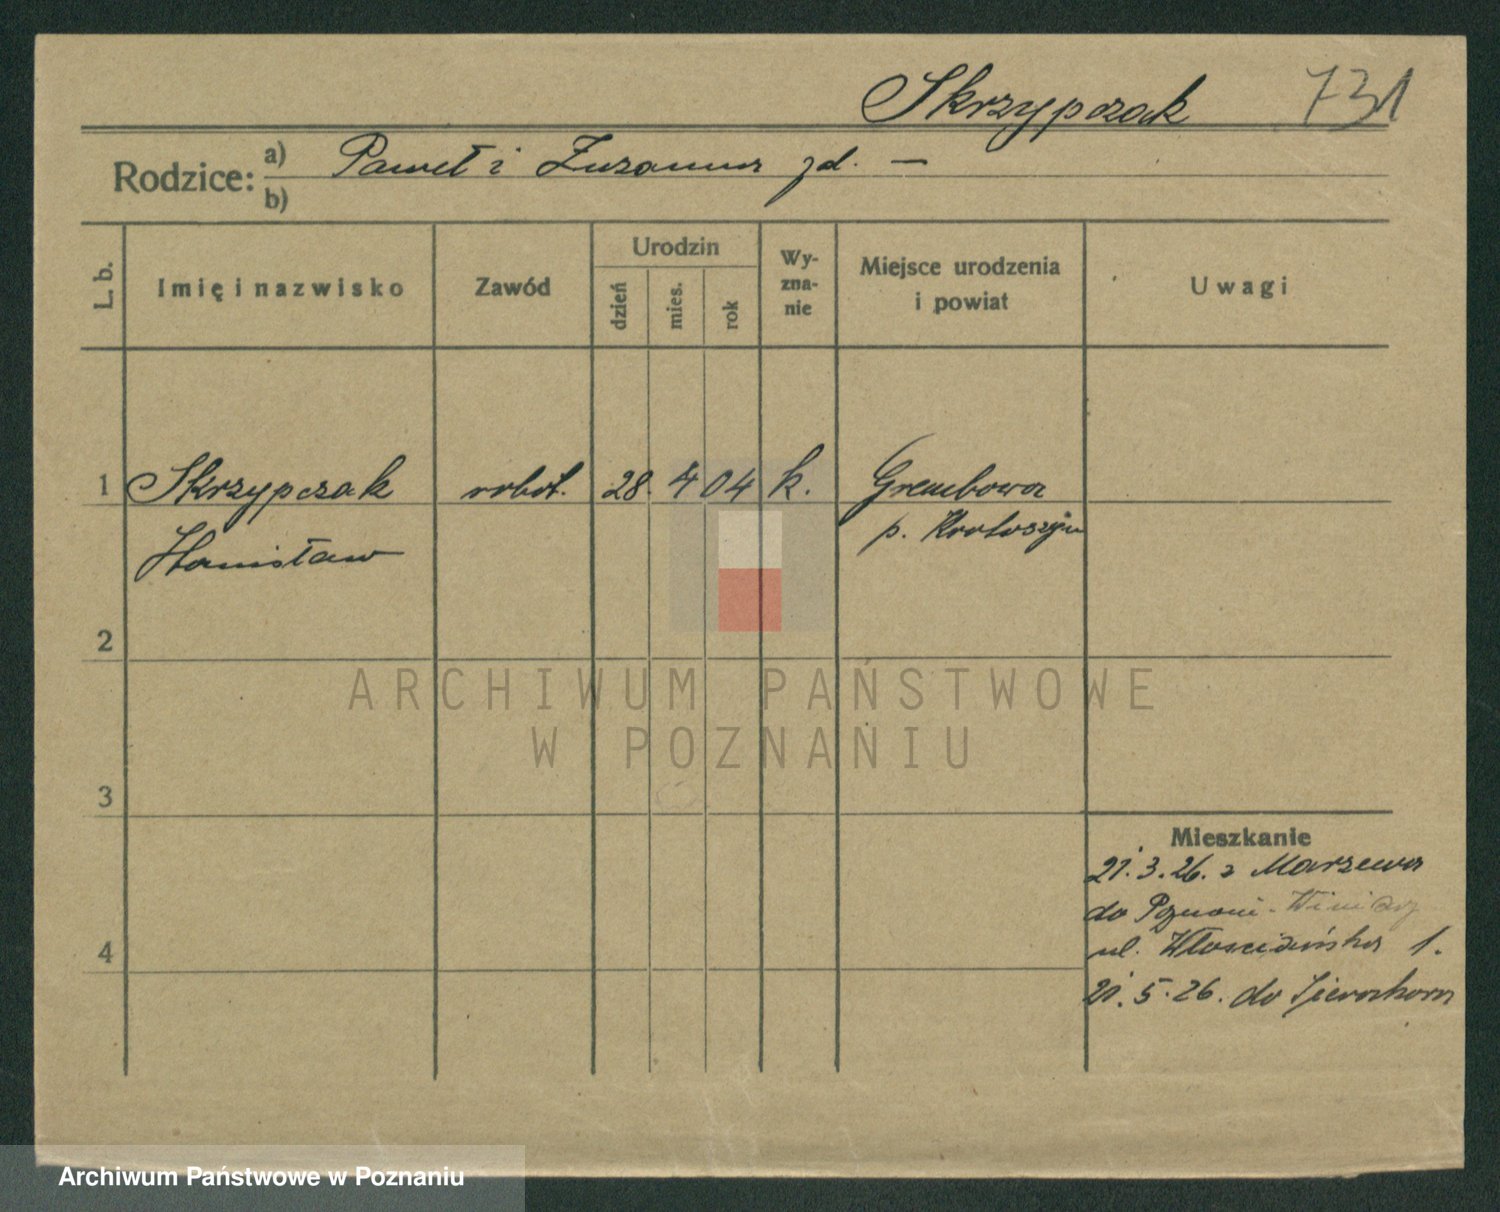 Skrzypczak 731
Rodzice: a) Paweł i Zuzanna zd. —
b)
L. b. Imię i nazwisko Zawód Urodzin dzień mies. rok Wy-zna-nie Miejsce urodzenia i powiat Uwagi
1 Skrzypczak robot. 28. 4 04 k. Grembowa
Stanisław p. Krotoszyn
2
ARCHIWUM PAŃSTWOWE
W POZNANIU
3
Mieszkanie
21.3.26. z Marzewa
do Poznani - Winiary
ul. Włościańska 1.
4
21.5.26. do
Archiwum Państwowe w Poznaniu